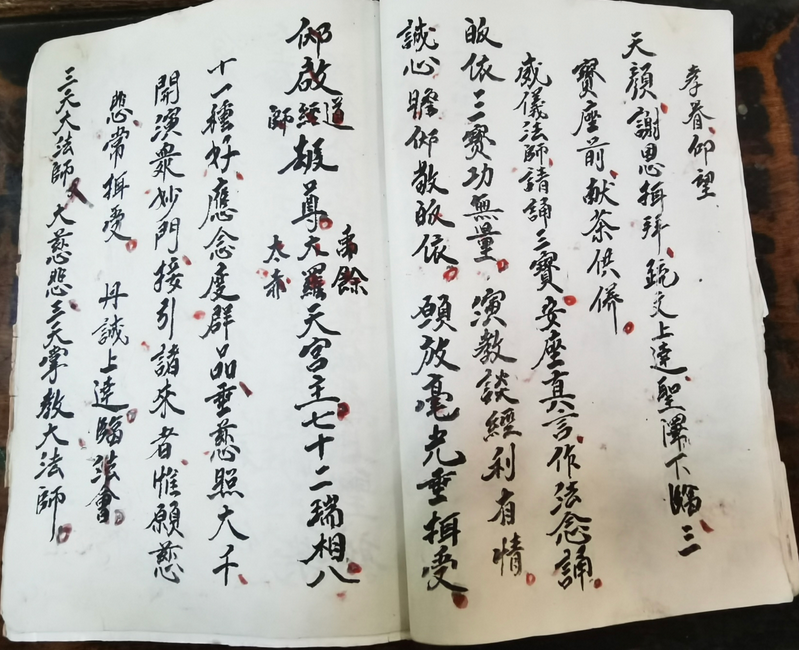 孝眷仰望
天顏謝恩揖拜疏文上達聖澤下臨三
寶座前献茶供餅
威儀法師請誦三寶安座真言作法念誦
皈依三寶功無量演教談經利有情
誠心瞻仰敬皈依願放毫光垂揖受
仰啟道經師雄尊大羅禹餘太赤天宮主七十二瑞相八
十一種好應念度群品垂慈照大千
開演衆妙門接引諸來者惟願慈
悲常揖受丹誠上達臨法會
三天大法師大慈悲三天掌教大法師